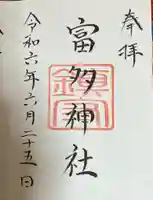 奉拝
富多神社
令和六年六月二十五日